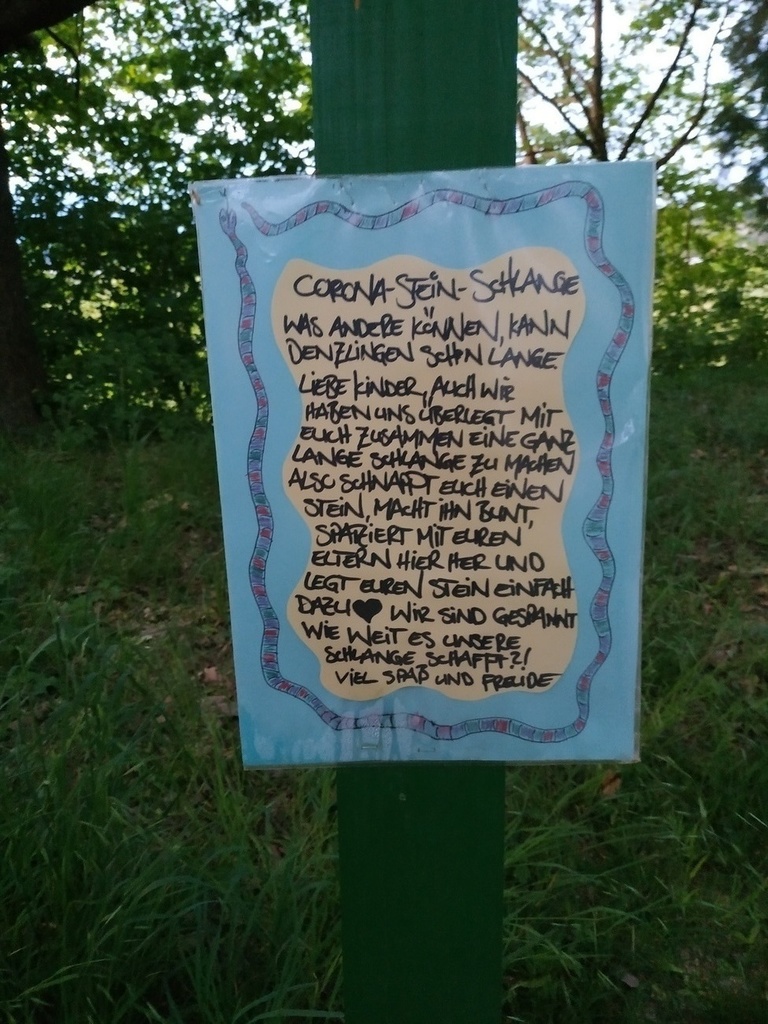 CORONA-STEIN-SCHLANGE
WAS ANDERE KÖNNEN, KANN
DENZLINGEN SCHON LANGE.
LIEBE KINDER, AUCH WIR
HABEN UNS ÜBERLEGT MIT
EUCH ZUSAMMEN EINE GANZ
LANGE SCHLANGE ZU MACHEN
ALSO SCHNAPPT EUCH EINEN
STEIN, MACHT IHN BUNT,
SPAZIERT MIT EUREN
ELTERN HIER HER UND
LEGT EUREN STEIN EINFACH
DAZU ♥ WIR SIND GESPANNT
WIE WEIT ES UNSERE
SCHLANGE SCHAFFT?!
VIEL SPAß UND FREUDE